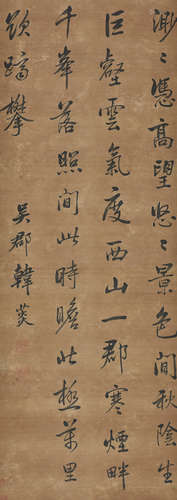 渺〻憑高望悠〻景色間秋陰生
巨壑雲氣度西山一郡寒煙畔
千峯落照間此時瞻北極萬里
欲躋攀
吳郡韓菼